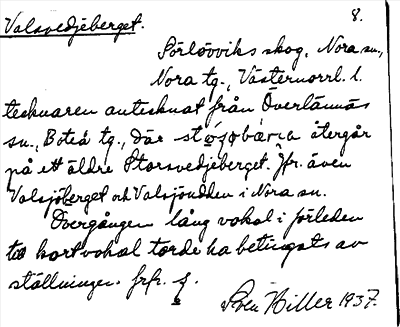 Valsvedjeberget. 8.
Sörlövviks skog, Nora sn,
Nora tg., Västernorrl. l.
tecknaren antecknat från Överlännäs
sn., Boteå tg., där återgår
på ett äldre Storsvedjeberget. Jfr. även
Valsjöberget och Valsjöudden i Nora sn.
Övergången lång vokal i förleden
till kort vokal torde ha betingats av
ställningen. frfr. f.
Sven Hiller 1937.